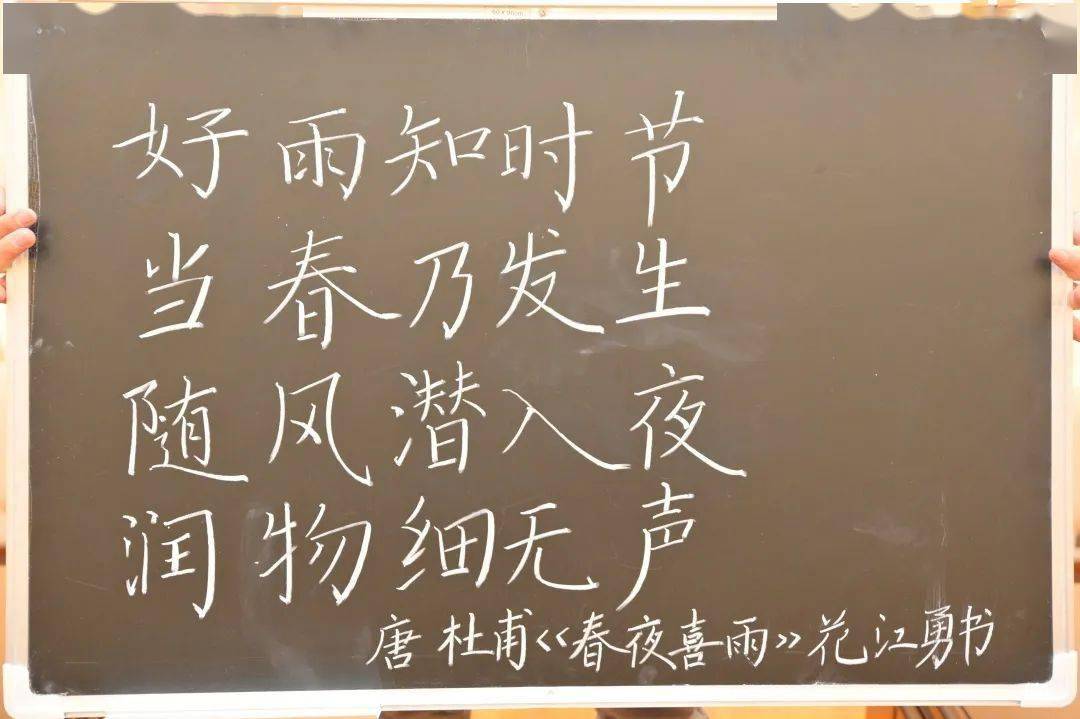 好雨知时节
当春乃发生
随风潜入夜
润物细无声
唐 杜甫《春夜喜雨》花江勇书